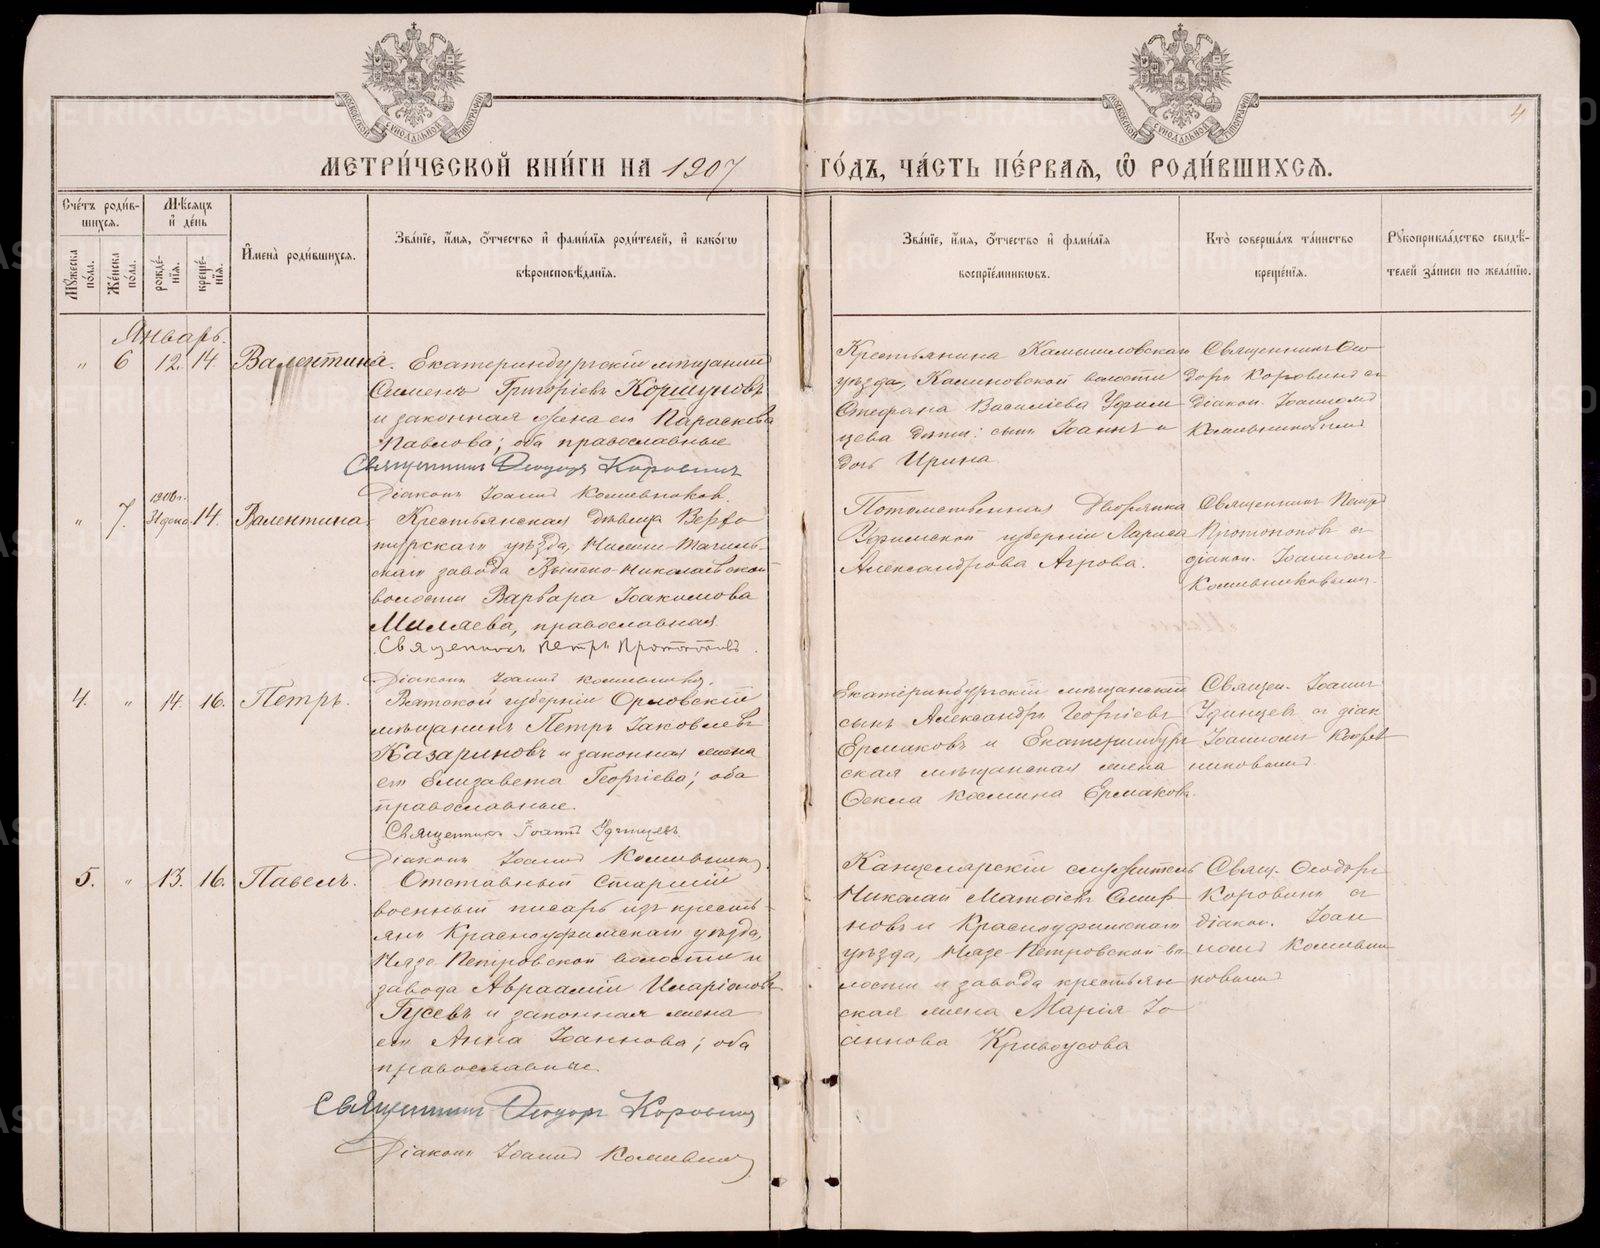 МЕТРИ́ЧЕСКОЙ КНИ́ГИ НА 1907 ГО́ДЪ, ЧА́СТЬ ПЕ́РВАЯ, Ѡ҆ РОДИ́ВШИХСЯ.
4
Сче́тъ роди́в-
шихся.
Мꙋ́жеска по́ла.
Же́нска по́ла.
Мѣ́сяцъ
и҆ де́нь
рожде́-
нїя.
креще́-
нїя.
И҆мена̀ роди́вшихся.
Зва́нїе, и҆́мя, ѻ҆́тчество и҆ фами́лїя роди́телей, и҆ како́гѡ
вѣроисповѣ́данїя.
Зва́нїе, и҆́мя, ѻ҆́тчество и҆ фами́лїя
воспрїе́мникѡвъ.
Кто̀ соверша́лъ та́инство
креще́нїя.
Рꙋкоприкла́дство свидѣ́-
телей за́писи по жела́нїю.
Январь.
" 6 12. 14. Валентина.
Екатеринбургскій мѣщанинъ
Симеонъ Григоріевъ Коршуновъ
и законная жена его Параскева
Павлова; оба православные
Священникъ Ѳеодоръ Коровинъ
Діаконъ Іоаннъ
Крестьянина Камышловскаго
уѣзда, Калиновской волости
Стефана Василіева Уфим
цева дѣти: сынъ Іоаннъ и
дочь Ирина
Священникъ Ѳео
доръ Коровинъ съ
діакон. Іоанномъ
" 7. 1906 г. 31 дека 14. Валентина
Крестьянская дѣвица Верхо
турскаго уѣзда, Нижне-Тагиль-
скаго завода Выйско-Николаевской
волости Варвара Іоакимова
Миляева, православная.
Священникъ Петръ Протопоповъ.
Діаконъ Іоаннъ
Потомственная Дворянка
Уфимской губерніи Лариса
Александрова Агрова.
Священникъ Петръ
Протопоповъ съ
діакон. Іоанномъ
4. " 14. 16. Петръ.
Вятской губерніи Орловскій
мѣщанинъ Петръ Іаковлевъ
Казариновъ и законная жена
его Елизавета Георгіева; оба
православные.
Священникъ Іоаннъ Удинцевъ
Діаконъ Іоаннъ
Екатеринбургскій мѣщанскій
сынъ Александръ Георгіевъ
Ермаковъ и Екатеринбург
ская мѣщанская жена
Ѳекла Космина Ермакова.
Священ. Іоаннъ
Удинцевъ съ діак
Іоанномъ
5. " 13. 16. Павелъ.
Отставный старшій
военный писарь изъ кресть-
янъ Красноуфимскаго уѣзда,
Нязе-Петровской волости и
завода Авраамій Иларіоновъ
Гусевъ и законная жена
его Анна Іоаннова; оба
православные.
Священникъ Ѳеодоръ Коровинъ
Діаконъ Іоаннъ
Канцелярскій служитель
Николай Матѳіевъ Смир
новъ и Красноуфимскаго
уѣзда, Нязе-Петровской во
лости и завода крестьян
ская жена Марія Іо
аннова Кривоусова
Свящ. Ѳеодоръ
Коровинъ съ
діакон. Іоан
номъ